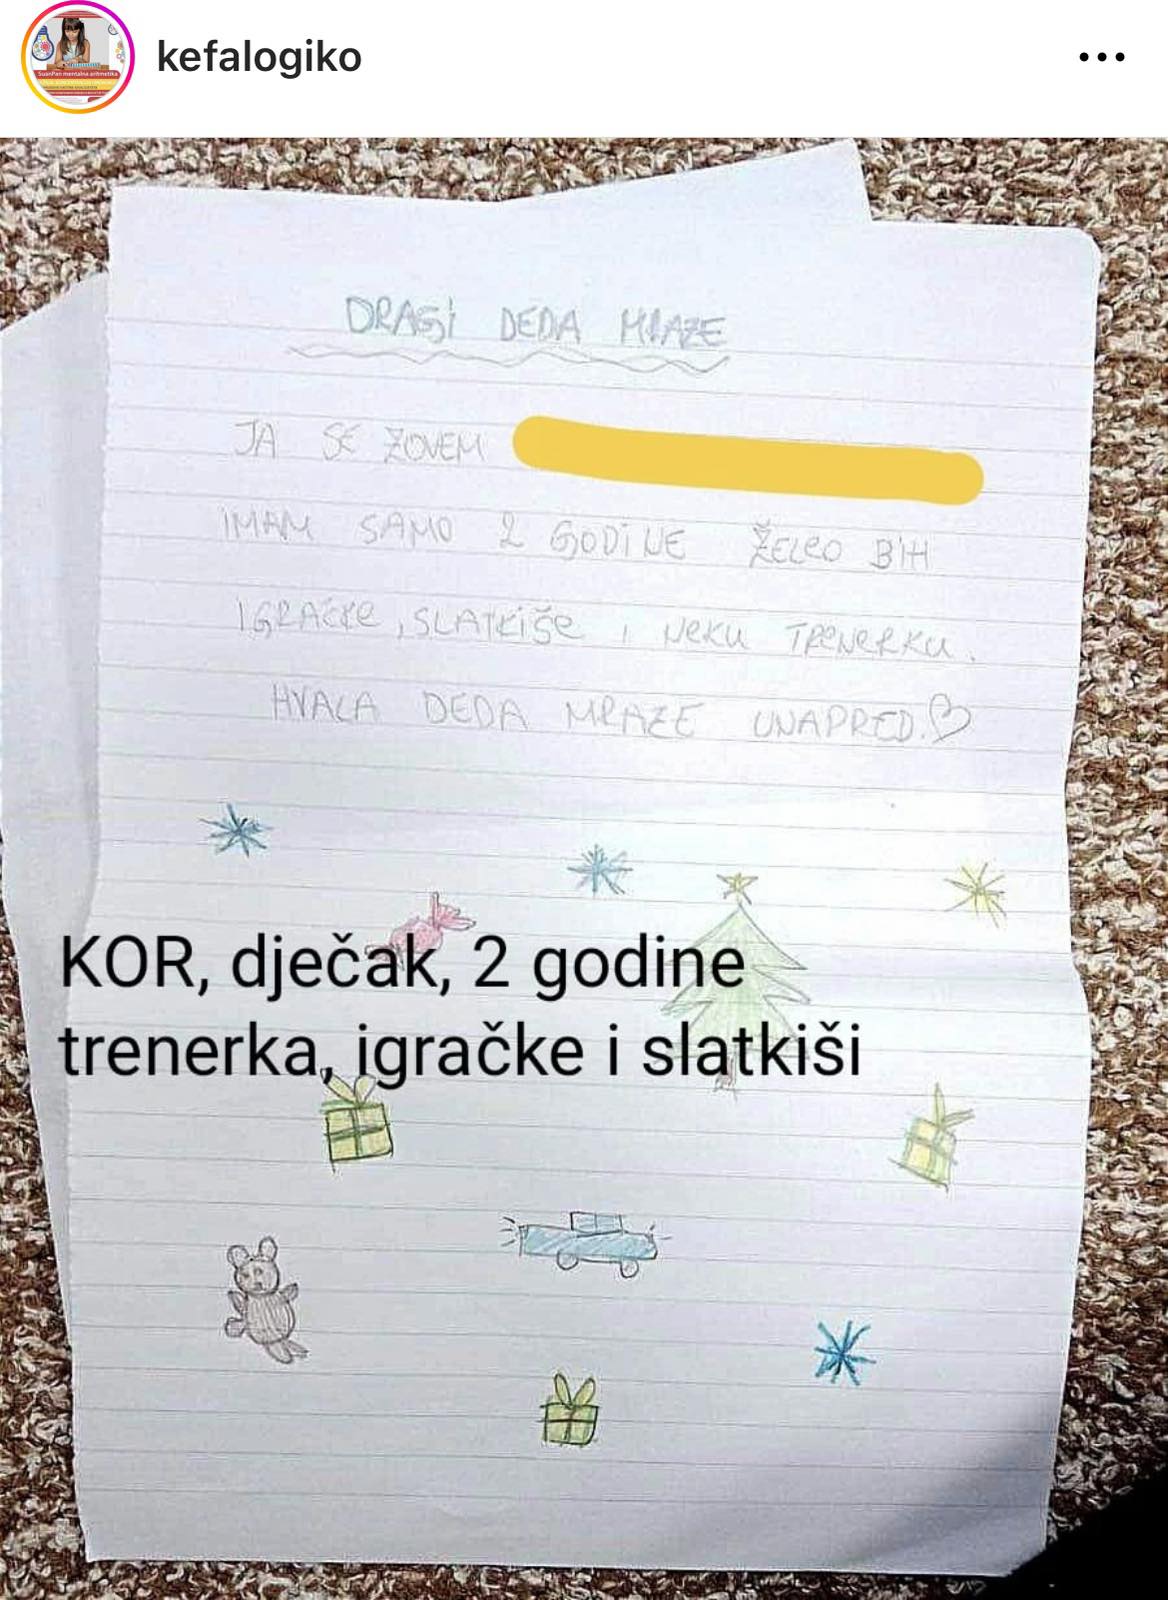 kefalogiko
SuanPan mentalna aritmetika
DRAGI DEDA MRAZE
JA SE ZOVEM
IMAM SAMO 2 GODINE ŽELEO BIH
IGRAČKE, SLATKIŠE I NEKU TRENERKU.
HVALA DEDA MRAZE UNAPRED.
KOR, dječak, 2 godine
trenerka, igračke i slatkiši